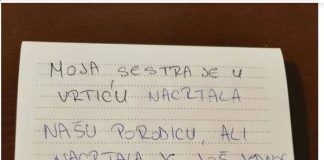 MOJA SESTRA JE U
VRTIĆU NACRTALA
NAŠU PORODICU, ALI
NACRTALA JE JOŠ JEDNOG